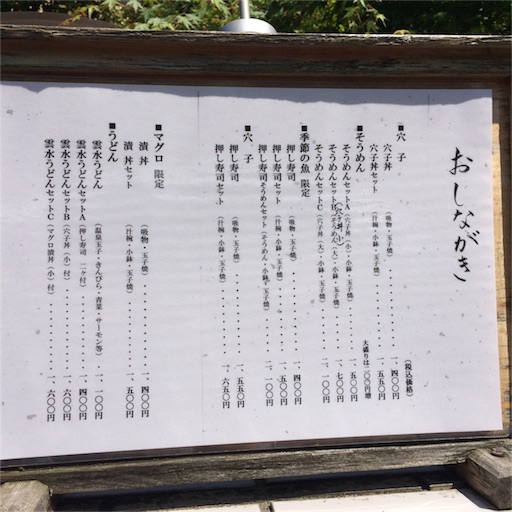 おしながき
(税込価格)
■穴 子
穴子丼 (吸物・玉子焼) 一、四〇〇円
穴子丼セット (汁椀・小鉢・玉子焼) 一、五五〇円
大盛りは二〇〇円増
■そうめん
そうめんセットA (穴子丼(小)・小鉢・玉子焼) 一、五〇〇円
そうめんセットB (穴子丼(小)そうめん(大)・小鉢・玉子焼) 一、七〇〇円
そうめんセットC (穴子丼(大)・小鉢・玉子焼) 二、一〇〇円
■季節の魚 限定
押し寿司 (吸物・玉子焼) 一、四〇〇円
押し寿司セット (汁椀・小鉢・玉子焼) 一、五〇〇円
押し寿司そうめんセット (そうめん・小鉢・玉子焼) 二、一〇〇円
■穴 子
押し寿司 (吸物・玉子焼) 一、五〇〇円
押し寿司セット (汁椀・小鉢・玉子焼) 一、六五〇円
■マグロ 限定
漬丼 (吸物・玉子焼) 一、四〇〇円
漬丼セット (汁椀・小鉢・玉子焼) 一、五五〇円
■うどん
雲水うどん (温泉玉子・きんぴら・青菜・サーモン等) 一、一〇〇円
雲水うどんセットA (押し寿司 二ヶ付) 一、四〇〇円
雲水うどんセットB (穴子丼(小)付) 一、五〇〇円
雲水うどんセットC (マグロ漬丼(小)付) 一、六〇〇円